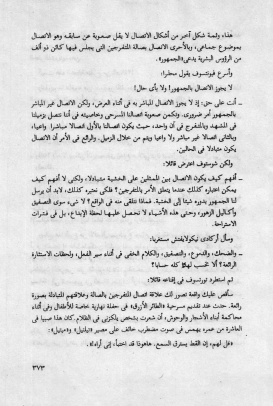 هذا، وثمة شكل آخر من أشكال الاتصال لا يقل صعوبة عن سابقه وهو الاتصال
بموضوع جماعي، وبالأحرى الاتصال بصالة المتفرجين التي يجلس فيها كائن ذو ألف
من الرؤوس البشرية يدعى «الجمهور».
وأسرع فيونتسوف يقول محذرا:
ـ لا يجوز الاتصال بالجمهور! ولا بأي حال!
ـ أنت على حق: إذ لا يجوز الاتصال المباشر به في أثناء العرض، ولكن الاتصال غير المباشر
بالجمهور أمر ضروري. وتكمن صعوبة اتصالنا المسرحي وخاصيته في أننا نتصل بزميلنا
في المشهد وبالمتفرج في آن واحد، حيث يكون اتصالنا بالأول اتصالا مباشرا واعيا،
وبالثاني اتصالا غير مباشر ولا واعيا ويتم من خلال الزميل. والرائع في الأمر أن الاتصال
يكون متبادلا في الحالين.
ولكن شوستوف اعترض قائلا:
ـ أفهم كيف يكون الاتصال بين الممثلين على الخشبة متبادلا، ولكني لا أفهم كيف
يمكن اعتباره كذلك عندما يتعلق الأمر بالمتفرجين؟ فلكي نعتبره كذلك، لابد أن يرسل
لنا الجمهور بدوره شيئا إلى الخشبة. فماذا نتلقى منه في الواقع؟ لا شيء سوى التصفيق
وأكاليل الزهور، وحتى هذه الأشياء لا نحصل عليها لحظة الإبداع، بل في فترات
الاستراحة.
وسأل أركادي نيكولايفتش مستغربا:
ـ والضحك، والدموع، والتصفيق، والكلام الخفي في أثناء سير الفعل، ولحظات الاستثارة
الرائعة؟ ألا تحسب لهذا كله حسابا؟
ثم استطرد تورتسوف في إقناعه قائلا:
سأقص عليك واقعة تصور لك علاقة اتصال المتفرجين بالصالة وعلاقتهم المتبادلة بصورة
رائعة. حدث عند تقديم مسرحية «الطائر الأزرق» في حفلة نهارية خاصة للأطفال وفي أثناء
محاكمة أبناء الأشجار والوحوش، أن شعرت بشخص يلكزني في الظلام. كان هذا صبيا في
العاشرة من عمره يهمس في صوت مضطرب خائف على مصير «تيلتيل» و«ميتيل»:
«قل لهم، إن القط يسترق السمع. هاهوذا قد اختبأ، إني أراه!».
٣٧٣